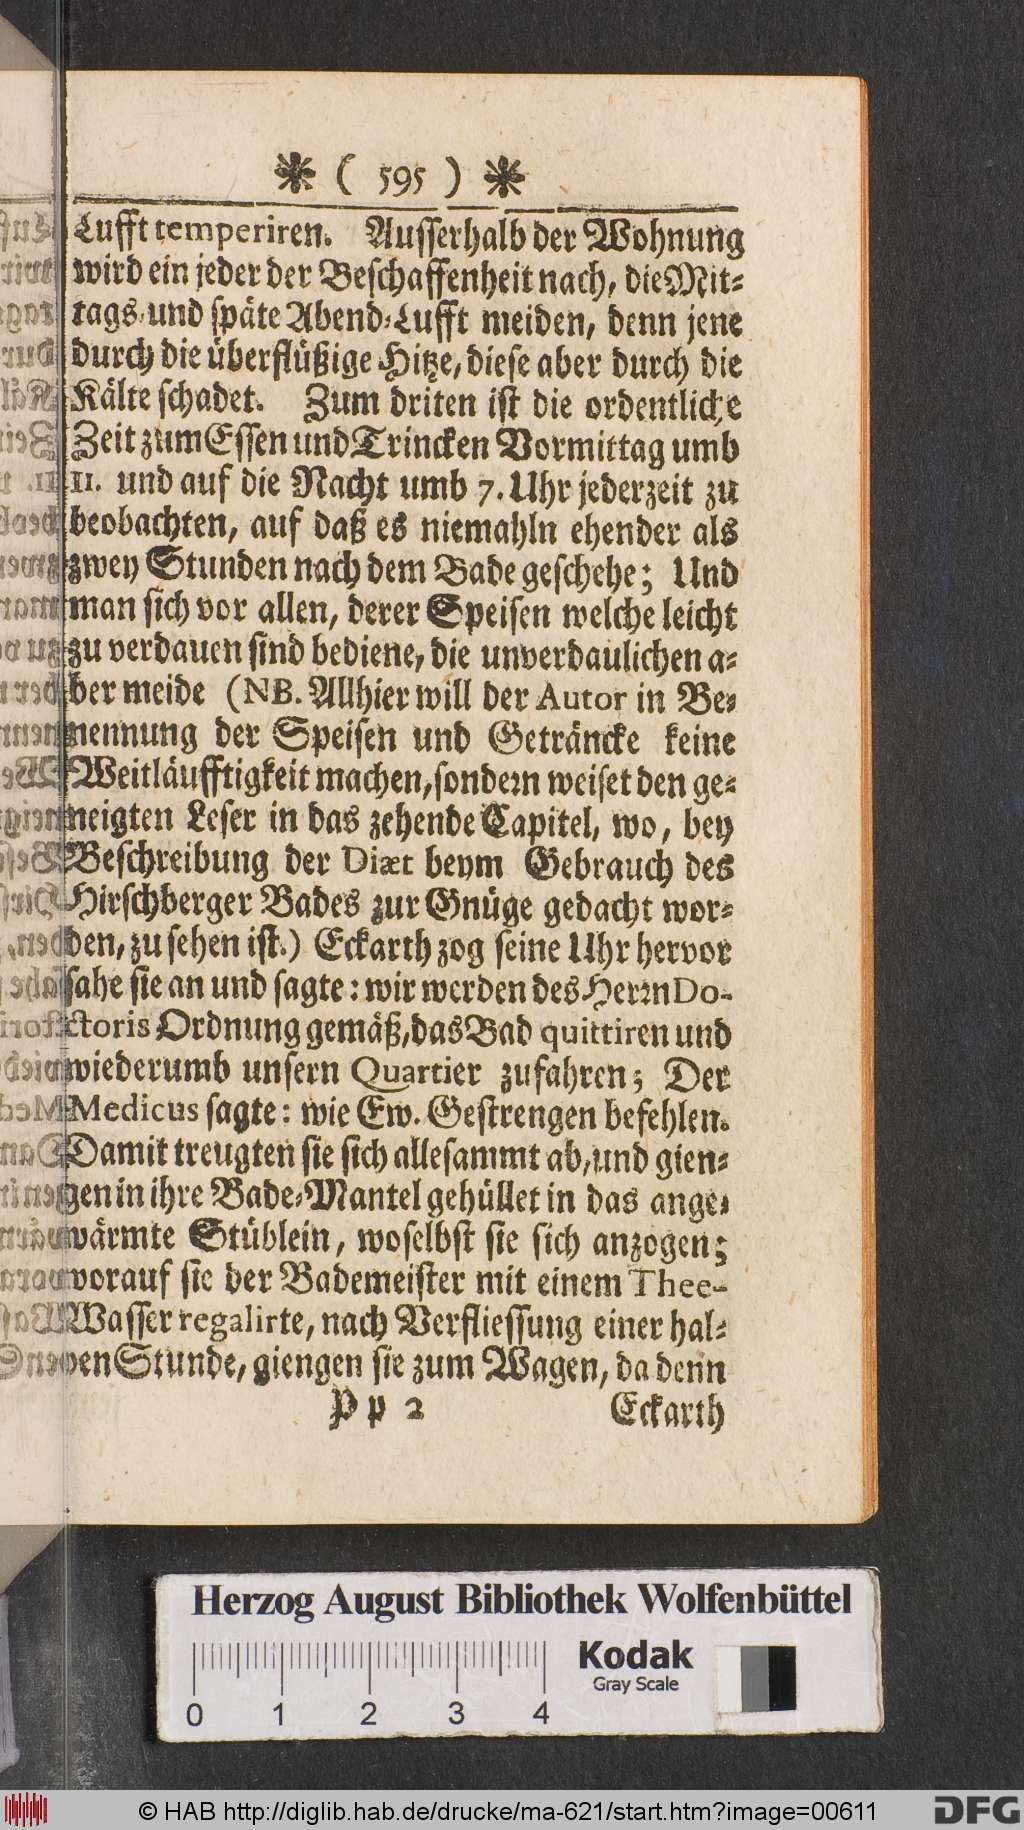 ( 595 )
Lufft temperiren. Ausserhalb der Wohnung
wird ein jeder der Beschaffenheit nach, die Mit-
tags- und späte Abend-Lufft meiden, denn jene
durch die überflüßige Hitze, diese aber durch die
Kälte schadet. Zum driten ist die ordentliche
Zeit zum Essen und Trincken Vormittag umb
11. und auf die Nacht umb 7. Uhr jederzeit zu
beobachten, auf daß es niemahln ehender als
zwey Stunden nach dem Bade geschehe; Und
man sich vor allen, derer Speisen welche leicht
zu verdauen sind bediene, die unverdaulichen a-
ber meide (NB. Allhier will der Autor in Be-
nennung der Speisen und Geträncke keine
Weitläufftigkeit machen, sondern weiset den ge-
neigten Leser in das zehende Capitel, wo, bey
Beschreibung der Diæt beym Gebrauch des
Hirschberger Bades zur Gnüge gedacht wor-
den, zu sehen ist.) Eckarth zog seine Uhr hervor
sahe sie an und sagte: wir werden des Herrn Do-
ctoris Ordnung gemäß, das Bad quittiren und
wiederumb unsern Quartier zufahren; Der
Medicus sagte: wie Ew. Gestrengen befehlen.
Damit treugten sie sich allesammt ab, und gien-
gen in ihre Bade-Mantel gehüllet in das ange-
wärmte Stüblein, woselbst sie sich anzogen;
worauf sie der Bademeister mit einem Thee-
Wasser regalirte, nach Verfliessung einer hal-
ben Stunde, giengen sie zum Wagen, da denn
Pp 2 Eckarth
Herzog August Bibliothek Wolfenbüttel
Kodak
Gray Scale
0 1 2 3 4
© HAB http://diglib.hab.de/drucke/ma-621/start.htm?image=00611
DFG